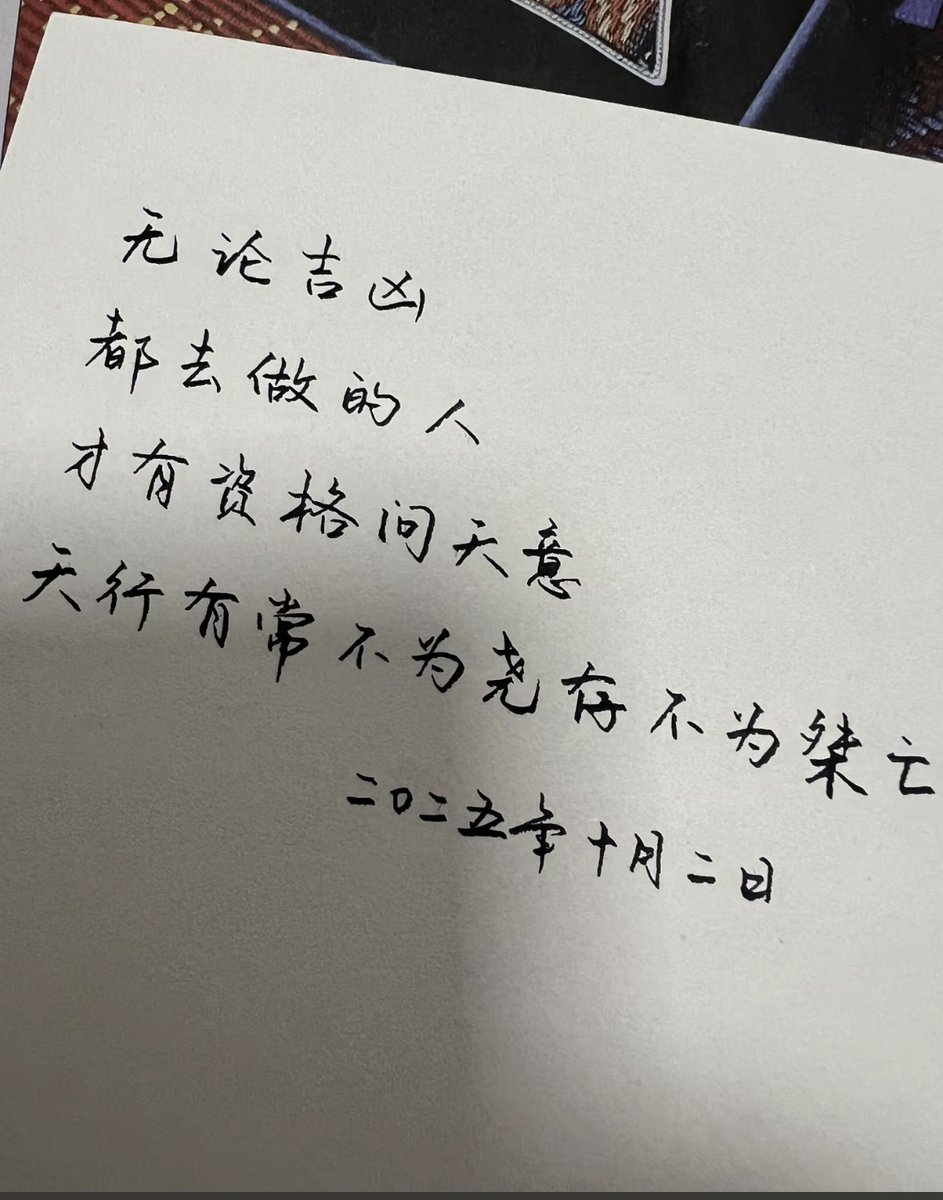 无论吉凶
都去做的人
才有资格问天意
天行有常不为尧存不为桀亡
二〇二五年十月二日